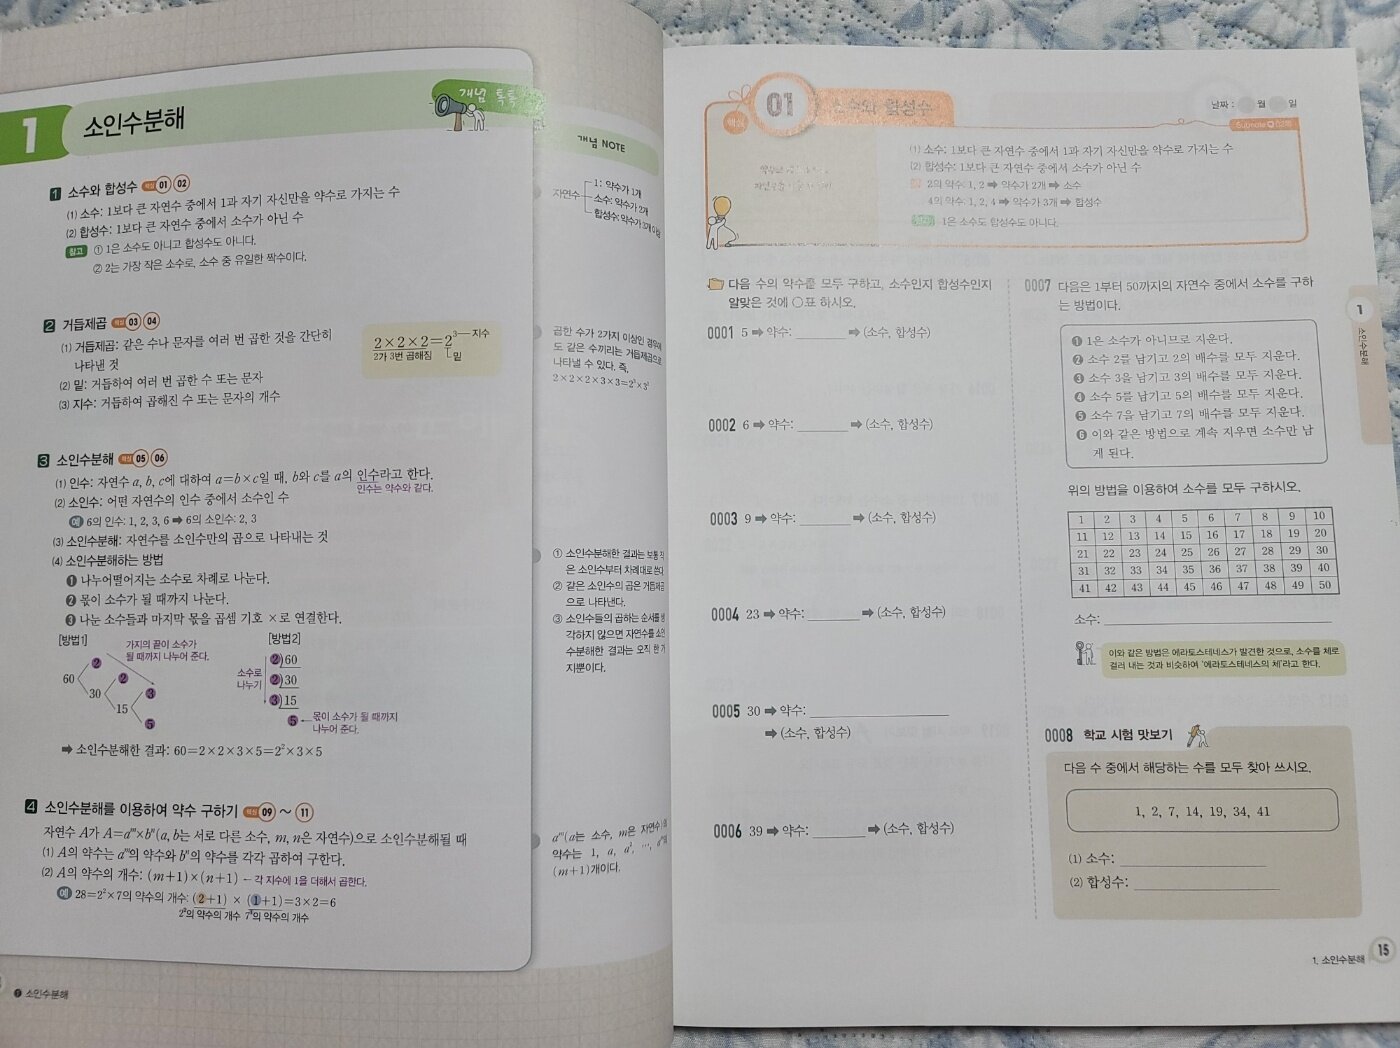 1 소인수분해
개념 톡톡
1 소수와 합성수 핵심 01 02
(1) 소수: 1보다 큰 자연수 중에서 1과 자기 자신만을 약수로 가지는 수
(2) 합성수: 1보다 큰 자연수 중에서 소수가 아닌 수
참고 ① 1은 소수도 아니고 합성수도 아니다.
② 2는 가장 작은 소수로, 소수 중 유일한 짝수이다.
2 거듭제곱 핵심 03 04
(1) 거듭제곱: 같은 수나 문자를 여러 번 곱한 것을 간단히
나타낸 것
(2) 밑: 거듭하여 여러 번 곱한 수 또는 문자
(3) 지수: 거듭하여 곱해진 수 또는 문자의 개수
2×2×2=2³ 지수
2가 3번 곱해짐 밑
3 소인수분해 핵심 05 06
(1) 인수: 자연수 a, b, c에 대하여 a=b×c일 때, b와 c를 a의 인수라고 한다.
인수는 약수와 같다.
(2) 소인수: 어떤 자연수의 인수 중에서 소수인 수
예 6의 인수: 1, 2, 3, 6 ➡ 6의 소인수: 2, 3
(3) 소인수분해: 자연수를 소인수만의 곱으로 나타내는 것
(4) 소인수분해하는 방법
❶ 나누어떨어지는 소수로 차례로 나눈다.
❷ 몫이 소수가 될 때까지 나눈다.
❸ 나눈 소수들과 마지막 몫을 곱셈 기호 ×로 연결한다.
[방법1]
가지의 끝이 소수가
될 때까지 나누어 준다.
60 2
30 2
15 3
5
[방법2]
소수로
나누기
2)60
2)30
3)15
5
몫이 소수가 될 때까지
나누어 준다.
➡ 소인수분해한 결과: 60=2×2×3×5=2²×3×5
4 소인수분해를 이용하여 약수 구하기 핵심 09 ~ 11
자연수 A가 A=aᵐ×bⁿ(a, b는 서로 다른 소수, m, n은 자연수)으로 소인수분해될 때
(1) A의 약수는 aᵐ의 약수와 bⁿ의 약수를 각각 곱하여 구한다.
(2) A의 약수의 개수: (m+1)×(n+1) ← 각 지수에 1을 더해서 곱한다.
예 28=2²×7의 약수의 개수: (2+1) × (1+1)=3×2=6
2²의 약수의 개수 7¹의 약수의 개수
소인수분해
개념 NOTE
자연수
1: 약수가 1개
소수: 약수가 2개
합성수: 약수가 3개 이상
곱한 수가 2가지 이상인 경우에
도 같은 수끼리는 거듭제곱으로
나타낼 수 있다. 즉,
2×2×2×3×3=2³×3²
① 소인수분해한 결과는 보통
은 소인수부터 차례대로 쓴다.
② 같은 소인수의 곱은 거듭제곱
으로 나타낸다.
③ 소인수들의 곱하는 순서를
각하지 않으면 자연수를
수분해한 결과는 오직 한
지뿐이다.
aᵐ(a는 소수, m은 자연수)의
약수는 1, a, a², …, aᵐ의
(m+1)개이다.
핵심 01 소수와 합성수
날짜 : 월 일
Subnote
(1) 소수: 1보다 큰 자연수 중에서 1과 자기 자신만을 약수로 가지는 수
(2) 합성수: 1보다 큰 자연수 중에서 소수가 아닌 수
예 2의 약수: 1, 2 ➡ 약수가 2개 ➡ 소수
4의 약수: 1, 2, 4 ➡ 약수가 3개 ➡ 합성수
참고 1은 소수도 합성수도 아니다.
다음 수의 약수를 모두 구하고, 소수인지 합성수인지
알맞은 것에 ○표 하시오.
0001 5 ➡ 약수: ➡ (소수, 합성수)
0002 6 ➡ 약수: ➡ (소수, 합성수)
0003 9 ➡ 약수: ➡ (소수, 합성수)
0004 23 ➡ 약수: ➡ (소수, 합성수)
0005 30 ➡ 약수:
➡ (소수, 합성수)
0006 39 ➡ 약수: ➡ (소수, 합성수)
0007 다음은 1부터 50까지의 자연수 중에서 소수를 구하
는 방법이다.
❶ 1은 소수가 아니므로 지운다.
❷ 소수 2를 남기고 2의 배수를 모두 지운다.
❸ 소수 3을 남기고 3의 배수를 모두 지운다.
❹ 소수 5를 남기고 5의 배수를 모두 지운다.
❺ 소수 7을 남기고 7의 배수를 모두 지운다.
❻ 이와 같은 방법으로 계속 지우면 소수만 남
게 된다.
위의 방법을 이용하여 소수를 모두 구하시오.
1 2 3 4 5 6 7 8 9 10
11 12 13 14 15 16 17 18 19 20
21 22 23 24 25 26 27 28 29 30
31 32 33 34 35 36 37 38 39 40
41 42 43 44 45 46 47 48 49 50
소수:
이와 같은 방법은 에라토스테네스가 발견한 것으로, 소수를 체로
걸러 내는 것과 비슷하여 '에라토스테네스의 체'라고 한다.
0008 학교 시험 맛보기
다음 수 중에서 해당하는 수를 모두 찾아 쓰시오.
1, 2, 7, 14, 19, 34, 41
(1) 소수:
(2) 합성수:
1
소인수분해
1. 소인수분해 15